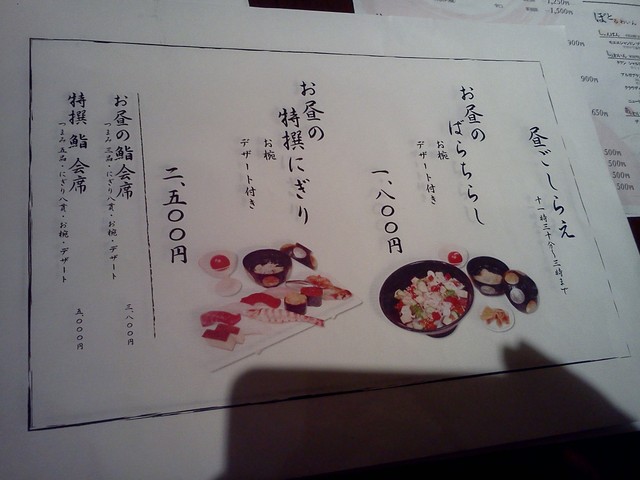 昼ごしらえ
十一時三十分〜三時まで
お昼の
ばらちらし
お椀
デザート付き
一、八〇〇円
お昼の
特撰にぎり
お椀
デザート付き
二、五〇〇円
お昼の鮨会席
つまみ三品・にぎり八貫・お椀・デザート
三、八〇〇円
特撰鮨会席
つまみ五品・にぎり八貫・お椀・デザート
五、〇〇〇円
1,250円
1,500円
900円
900円
650円
500円
500円
500円
500円